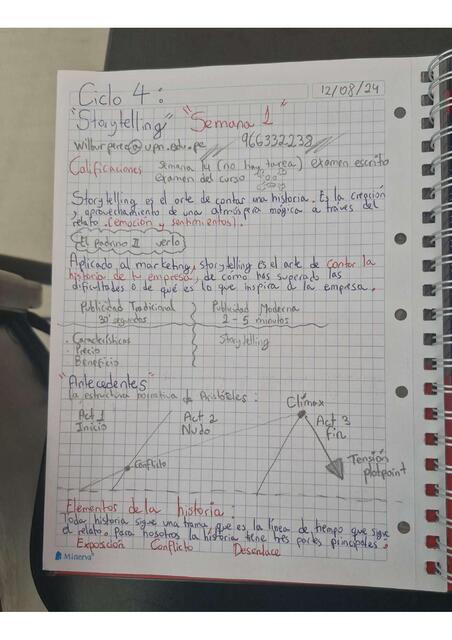 Ciclo 4:
12/08/24
"Storytelling" "Semana 1"
966332238
Calificaciones Semana 14 (no hay tarea) examen escrito
examen del curso
Storytelling es el arte de contar una historia. Es la creación
y aprovechamiento de una atmósfera mágica a través del
relato. (emoción y sentimientos).
El padrino II verlo
Aplicado al marketing, storytelling es el arte de contar la
historia de tu empresa, de como has superado las
dificultades o de qué es lo que inspira a la empresa.
Publicidad Tradicional Publicidad Moderna
30 segundos 2 - 5 minutos
. Características Storytelling
. Precio
. Beneficio
"Antecedentes"
la estructura narrativa de Aristóteles:
Clímax
Act 1 Act 2 Act 3
Inicio Nudo Fin
Conflicto
Tensión
plotpoint
Elementos de la historia:
Toda historia sigue una trama, que es la línea de tiempo que sigue
el relato. para nosotros la historia tiene tres partes principales.
Exposición Conflicto Desenlace
Minerva